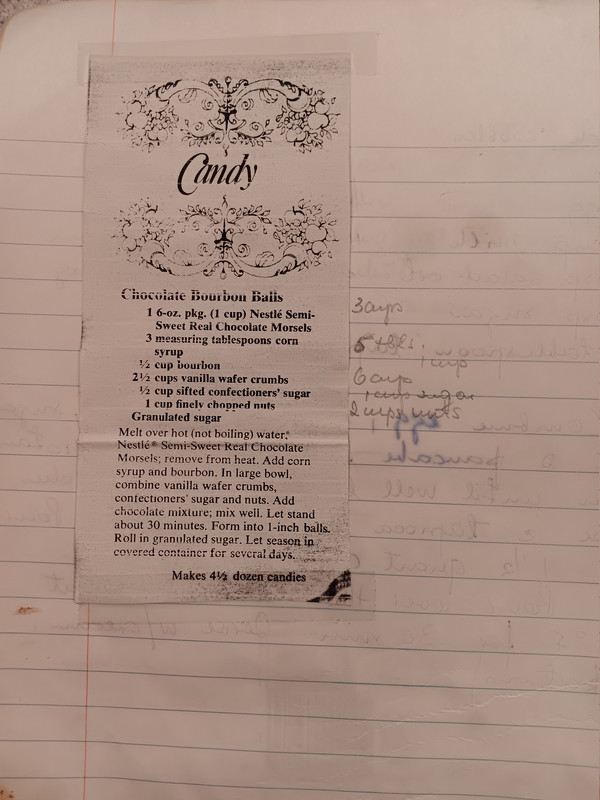 Candy
Chocolate Bourbon Balls
1 6-oz. pkg. (1 cup) Nestlé Semi-
Sweet Real Chocolate Morsels
3 measuring tablespoons corn
syrup
½ cup bourbon
2½ cups vanilla wafer crumbs
½ cup sifted confectioners' sugar
1 cup finely chopped nuts
Granulated sugar
Melt over hot (not boiling) water,
Nestlé® Semi-Sweet Real Chocolate
Morsels; remove from heat. Add corn
syrup and bourbon. In large bowl,
combine vanilla wafer crumbs,
confectioners' sugar and nuts. Add
chocolate mixture; mix well. Let stand
about 30 minutes. Form into 1-inch balls.
Roll in granulated sugar. Let season in
covered container for several days.
Makes 4½ dozen candies
3 cups
1 cup
6 cup
1 cup sugar
2 cups nuts